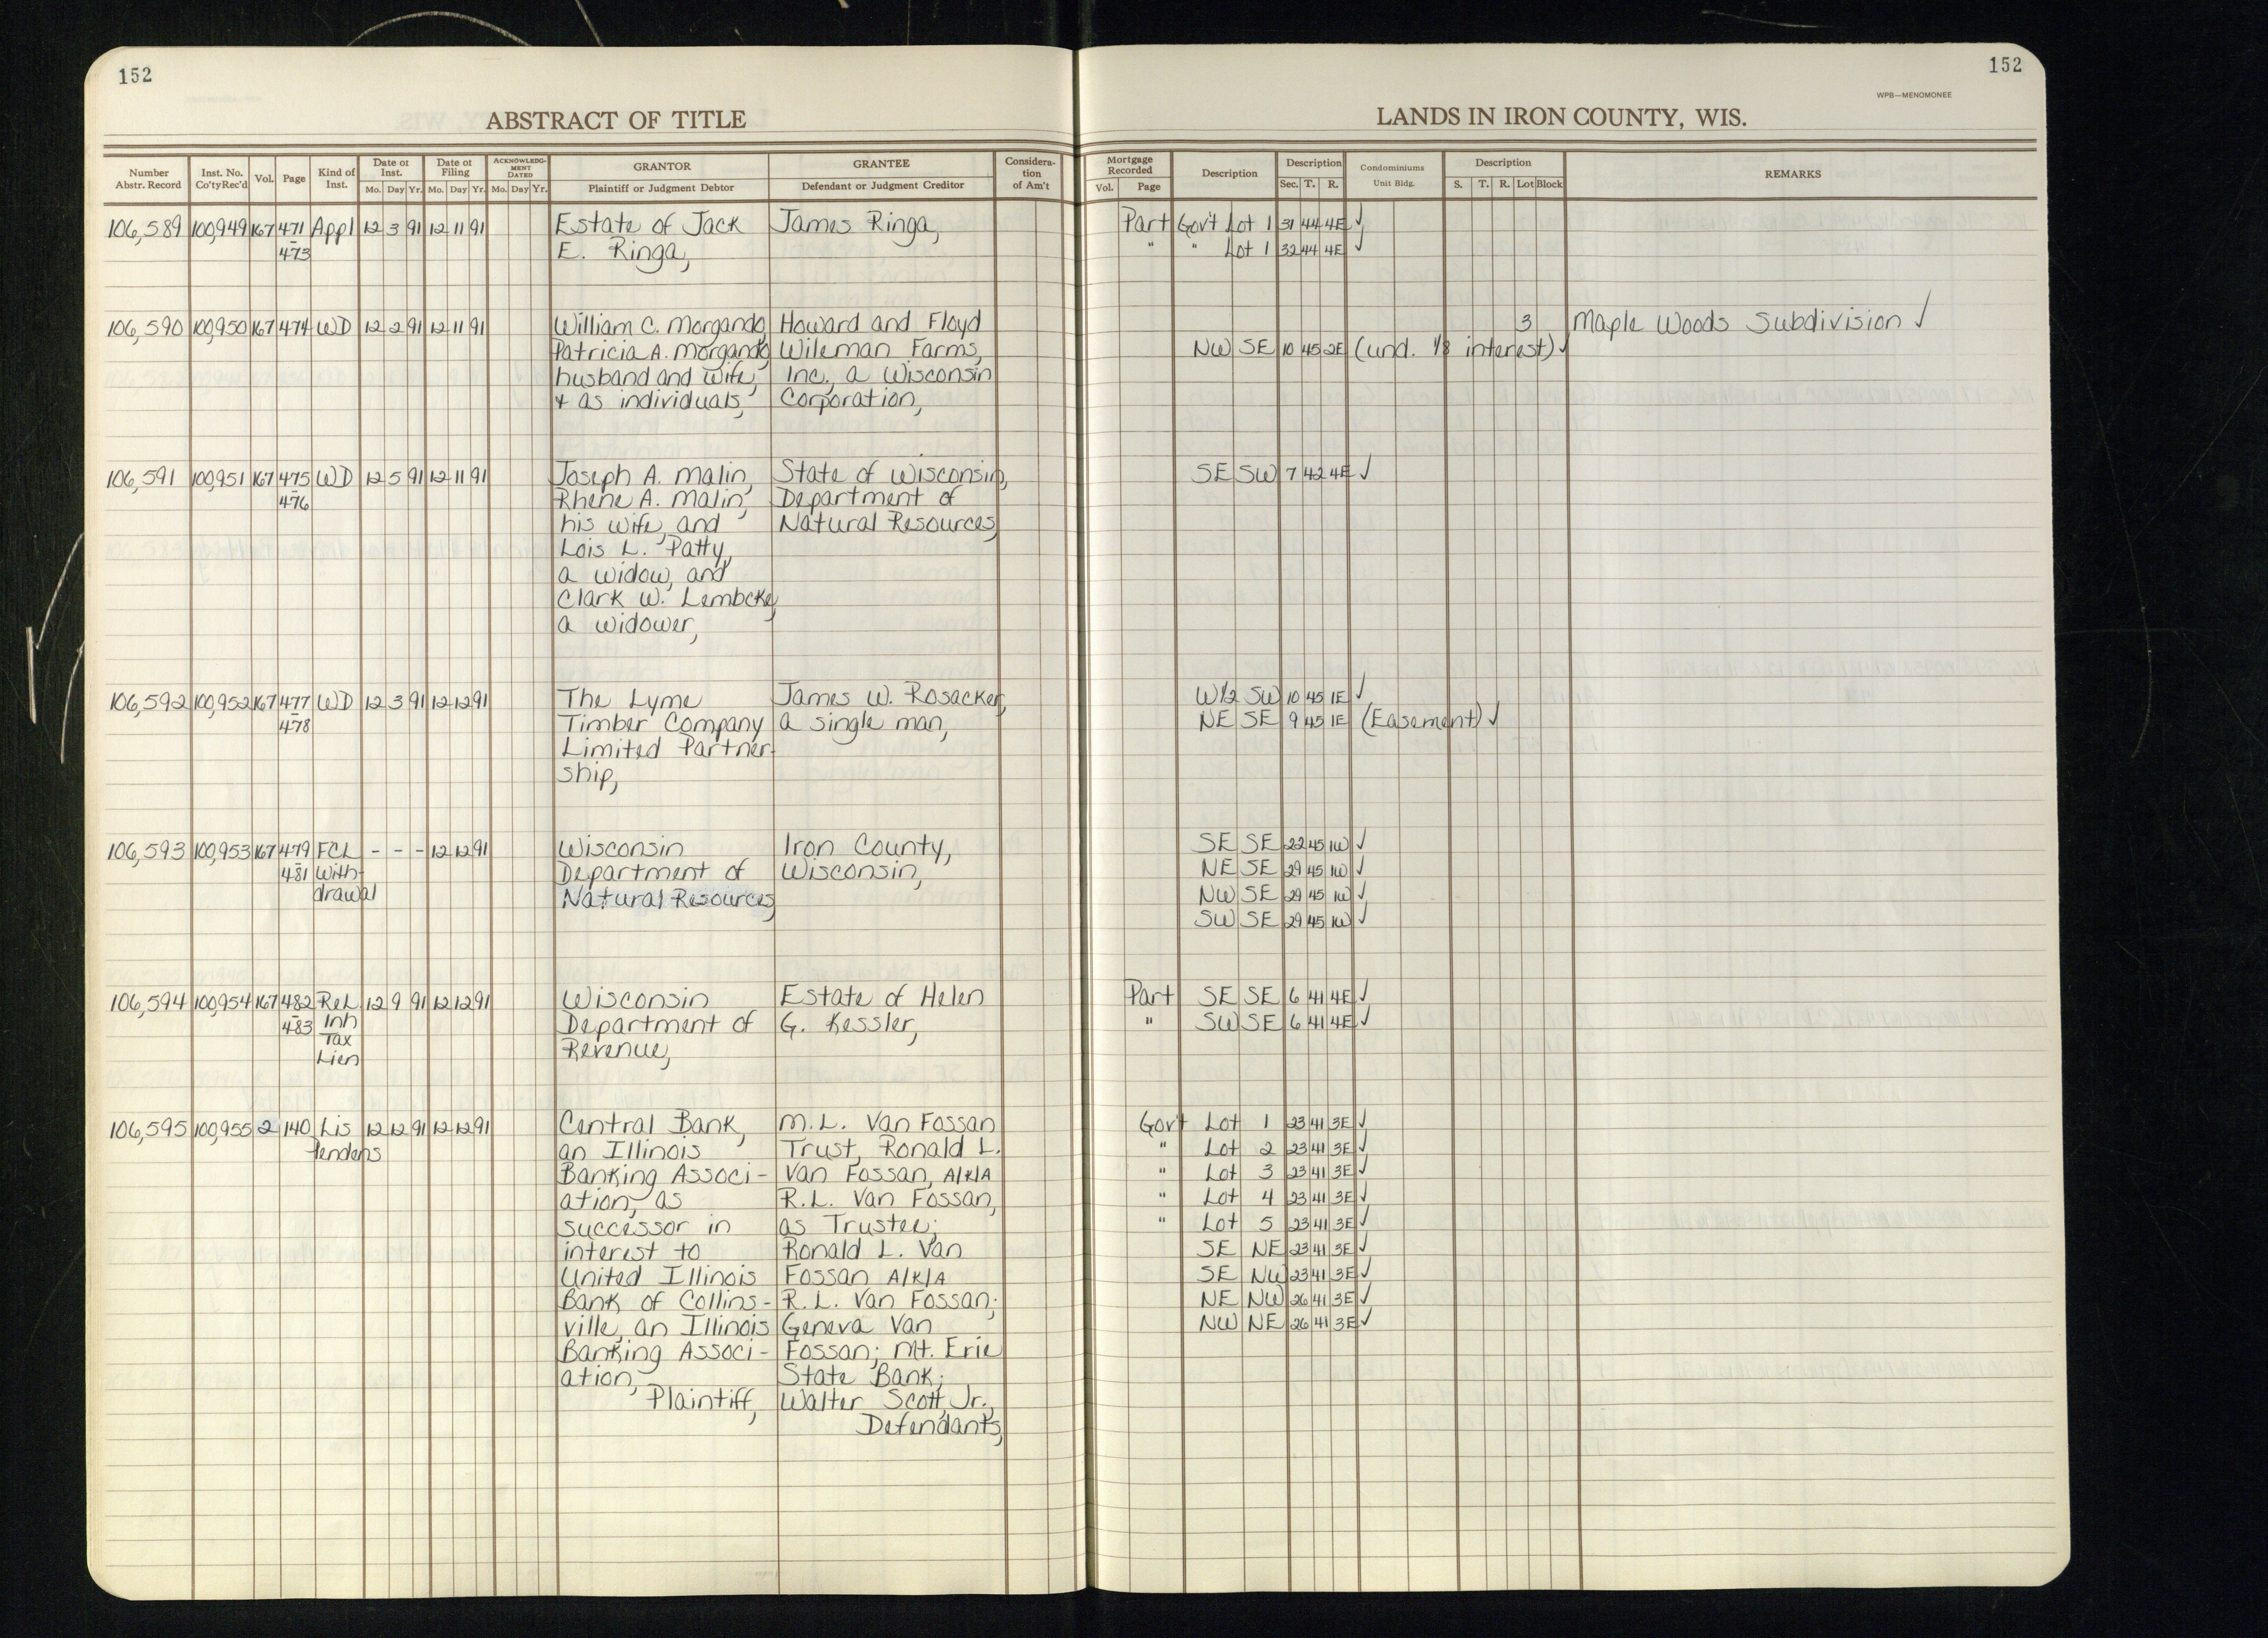 152
152
WPB—MENOMONEE
ABSTRACT OF TITLE
LANDS IN IRON COUNTY, WIS.
Number Abstr. Record
Inst. No. Co'ty Rec'd
Vol.
Page
Kind of Inst.
Date of Inst. Mo. Day Yr.
Date of Filing Mo. Day Yr.
ACKNOWLEDG-MENT DATED Mo. Day Yr.
GRANTOR Plaintiff or Judgment Debtor
GRANTEE Defendant or Judgment Creditor
Considera-tion of Am't
Mortgage Recorded Vol. Page
Description
Description Sec. T. R.
Condominiums Unit Bldg.
Description S. T. R. Lot Block
REMARKS
106,589 100,949 167 471 Appl 12 3 91 12 11 91 Estate of Jack James Ringa, Part Gov't Lot 1 31 44 4E ✓
– 473 E. Ringa, " " Lot 1 32 44 4E ✓
106,590 100,950 167 474 WD 12 2 91 12 11 91 William C. Morgando, Howard and Floyd 3 Maple Woods Subdivision ✓
Patricia A. Morgando, Wileman Farms, NW SE 10 45 2E (und. 1/8 interest) ✓
husband and wife, Inc., a Wisconsin
+ as individuals, Corporation,
106,591 100,951 167 475 WD 12 5 91 12 11 91 Joseph A. Malin, State of Wisconsin, SE SW 7 42 4E ✓
– 476 Rhene A. Malin, Department of
his wife, and Natural Resources,
Lois L. Patty,
a widow, and
Clark W. Lembcke,
a widower,
106,592 100,952 167 477 WD 12 3 91 12 12 91 The Lyme James W. Rosacker, W1/2 SW 10 45 1E ✓
– 478 Timber Company a single man, NE SE 9 45 1E (Easement) ✓
Limited Partner-
ship,
106,593 100,953 167 479 FCL - - - 12 12 91 Wisconsin Iron County, SE SE 22 45 1W ✓
– 481 With- Department of Wisconsin, NE SE 29 45 1W ✓
drawal Natural Resources, NW SE 29 45 1W ✓
SW SE 29 45 1W ✓
106,594 100,954 167 482 Rel. 12 9 91 12 12 91 Wisconsin Estate of Helen Part SE SE 6 41 4E ✓
– 483 Inh Department of G. Kessler, " SW SE 6 41 4E ✓
Tax Revenue,
Lien
106,595 100,955 2 140 Lis 12 12 91 12 12 91 Central Bank, M.L. Van Fossan Gov't Lot 1 23 41 3E ✓
Pendens an Illinois Trust, Ronald L. " Lot 2 23 41 3E ✓
Banking Associ- Van Fossan, A/K/A " Lot 3 23 41 3E ✓
ation, as R.L. Van Fossan, " Lot 4 23 41 3E ✓
successor in as Trustee; " Lot 5 23 41 3E ✓
interest to Ronald L. Van SE NE 23 41 3E ✓
United Illinois Fossan A/K/A SE NW 23 41 3E ✓
Bank of Collins- R.L. Van Fossan; NE NW 26 41 3E ✓
ville, an Illinois Geneva Van NW NE 26 41 3E ✓
Banking Associ- Fossan; Mt. Erie
ation, State Bank;
Plaintiff, Walter Scott, Jr.,
Defendants,